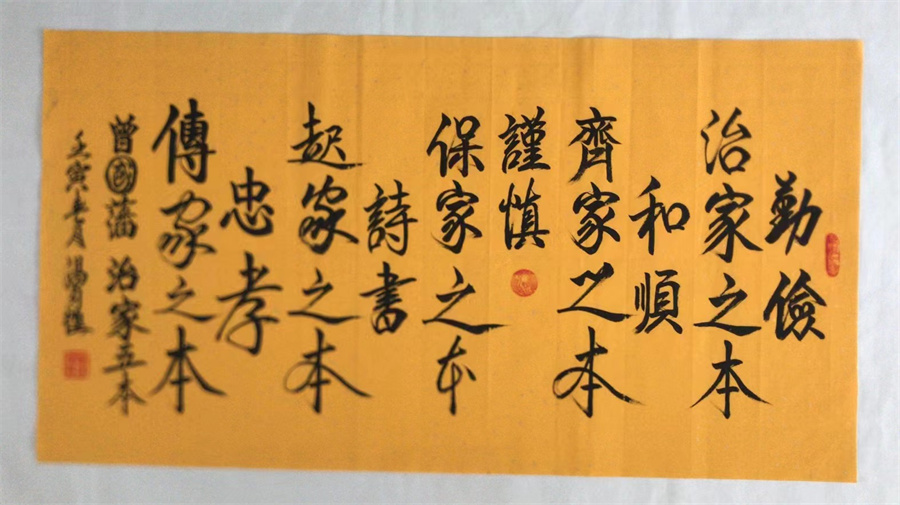 勤儉
治家之本
和順
齊家之本
謹慎
保家之本
詩書
起家之本
忠孝
傳家之本
曾國藩 治家五本
壬寅